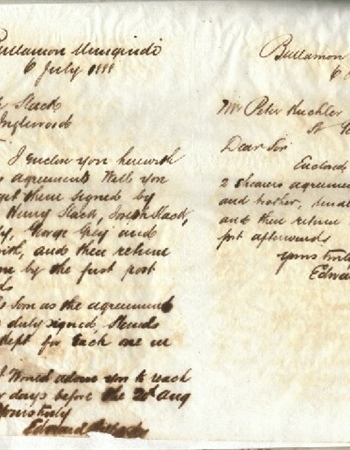 Bullamon Mungindi
6 July 1888
Slack
Inglewood
I Enclose you herewith
agreements Will you
get them signed by
Henry Slack, Joseph Slack,
George Grey and
and then return
by the first post
So soon as the agreements
duly signed, Stands
kept for Each one in
I Would advise you to reach
days before the 20th Aug
Yours truly
Edward
Bullamon
6
Mr Peter Kuchler
St
Dear Sir
Enclosed
2 Shearers agreeme
and brother,
and then return
post afterwards
Yours truly
Edwa